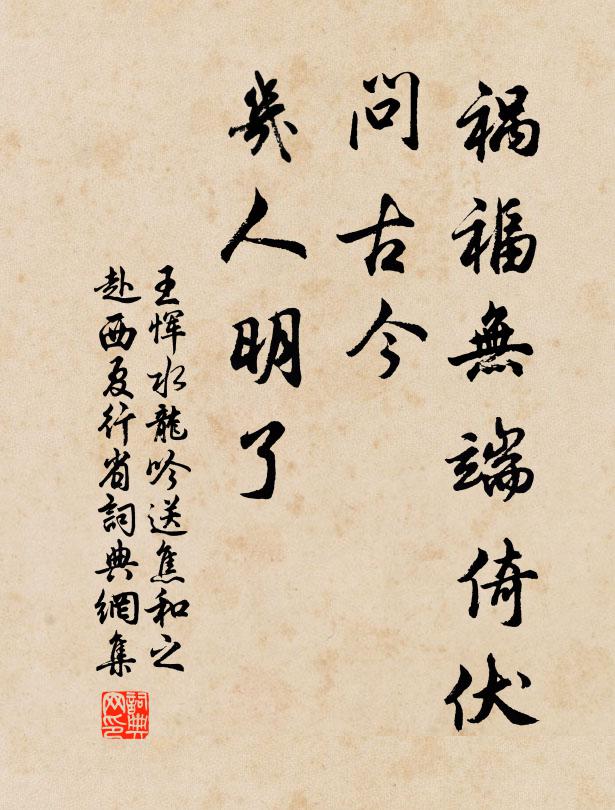 禍福無端倚伏
問古今
幾人明了
王惲水龍吟送焦和之
赴西夏行省詞典網集
詞典網印